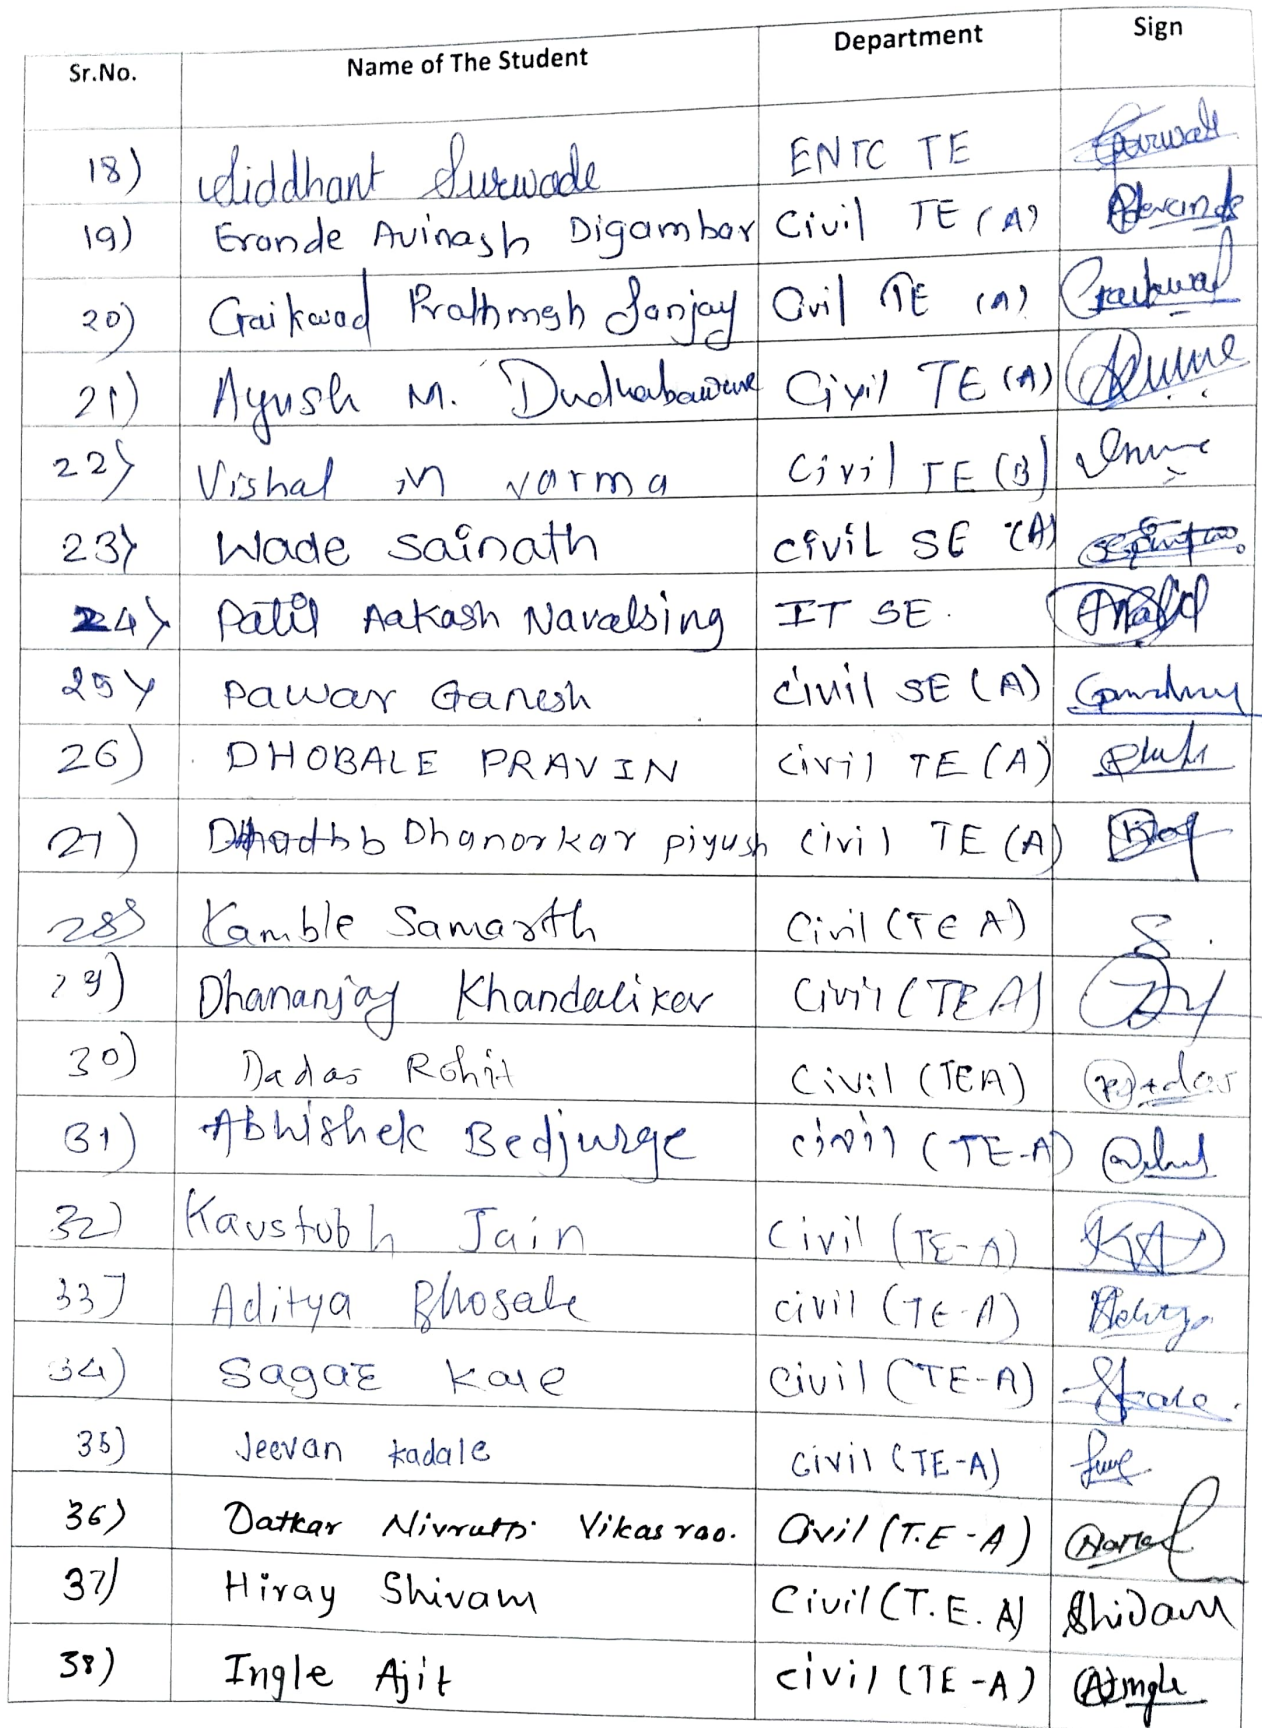 Sr.No. Name of The Student Department Sign
18) Siddhant Surwade ENTC TE Surwade
19) Erande Avinash Digambar Civil TE (A)
20) Gaikwad Prathmesh Sanjay Civil TE (A) Gaikwad
21) Ayush M. Civil TE (A)
22) Vishal M varma Civil TE (B)
23) Wade Sainath Civil SE (A)
24) Patil Aakash Navalsing IT SE.
25) Pawar Ganesh Civil SE (A)
26) DHOBALE PRAVIN Civil TE (A)
27) Dhanorkar Piyush Civil TE (A)
28) Kamble Samarth Civil (TE A) S.
29) Dhananjay Khandalikar Civil (TE A)
30) Dadas Rohit Civil (TEA)
31) Abhishek Bedjurge Civil (TE-A)
32) Kaustubh Jain Civil (TE-A)
33) Aditya Bhosale Civil (TE-A)
34) Sagar Kale Civil (TE-A)
35) Jeevan Kadale Civil (TE-A)
36) Datkar Nivrutti Vikasrao. Civil (T.E-A)
37) Hiray Shivam Civil (T.E. A) Shivam
38) Ingle Ajit Civil (TE-A) AIngle